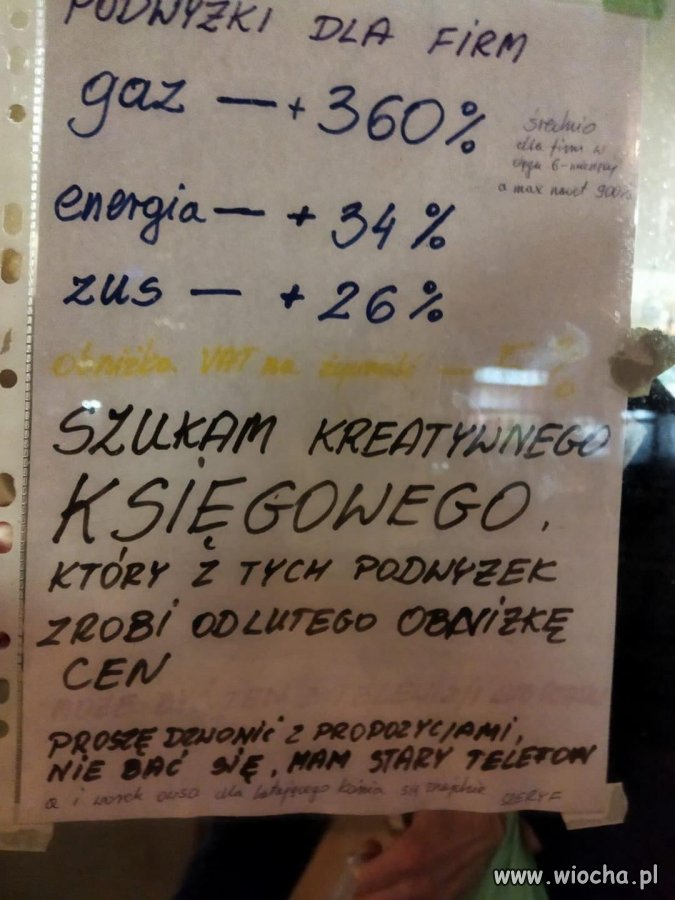 PODWYŻKI DLA FIRM
gaz — + 360%
średnio
dla firm w
a max nawet 900%
energia — + 34%
zus — + 26%
obniżka VAT na żywność — 5%
SZUKAM KREATYWNEGO
KSIĘGOWEGO,
KTÓRY Z TYCH PODWYŻEK
ZROBI OD LUTEGO OBNIŻKĘ
CEN
PROSZĘ DZWONIĆ Z PROPOZYCJAMI,
NIE BAĆ SIĘ, MAM STARY TELEFON
i worek owsa dla latającego konia się znajdzie SZERYF
www.wiocha.pl